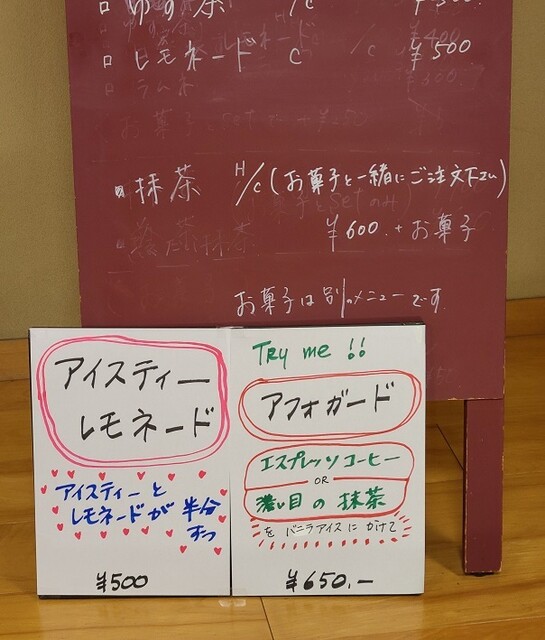 ロ ゆず茶 /c ¥500
ロ レモネード C ¥500
抹茶 H/c (お菓子と一緒にご注文下さい)
¥600.+お菓子
お菓子は別メニューです。
アイスティー
レモネード
アイスティーと
レモネードが 半分
ずつ
¥500
Try me !!
アフォガード
エスプレッソコーヒー
OR
濃い目の抹茶
を バニラアイスに かけて
¥650.-